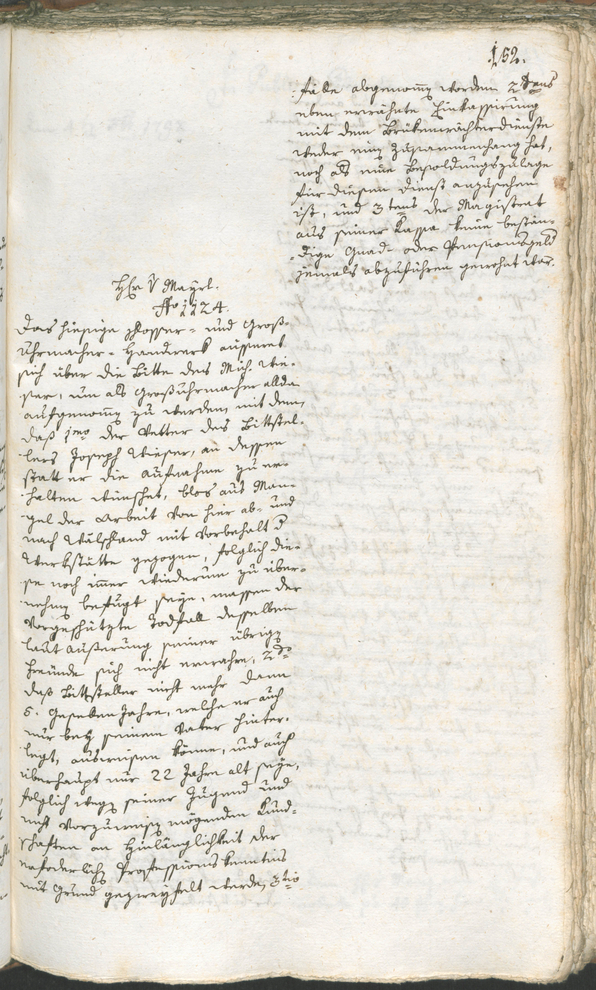 152.
falle abgenom̅en worden 2tens
eben erwähnte Einkassirung
mit dem Brükenwächterdienste
weder eine Zusammenhang hat,
noch als eine Besoldungszulage
für diesen Dienst anzusehen
ist, und 3tens der Magistrat
aus seiner Kassa keine bestän-
dige Gnad- oder Pensionsgeld
jemals abzuführen gewohnt war.
Hr. v Mayrl.
No 1224.
Das hiesige Schlosser- und Groß-
uhrmacher-Handwerk äussert
sich über die Bitte des Mich. Wie-
ser, um als Großuhrmacher allda
aufgenom̅en zu werden mit dem
daß 1mo der Vetter des Bittstel-
lers Joseph Wieser, an dessen
statt er die Aufnahme zu er-
halten wünschet, blos aus Man-
gel der Arbeit von hier ab- und
nach Wälschland mit Vorbehalt d
Werkstätte gezogen, folglich die-
se noch im̅er wiederum zu über-
nehmen befugt seye, massen der
vorgeschützte Todfall desselben
laut Äußerung seiner übrigen
Freunde sich nicht erwahre, 2do
daß Bittsteller nicht mehr dann
5. Gesellen Jahre, welche er auch
nur bey seinem Vater hinter-
legt, ausweisen könne, und auch
überhaupt nur 22 Jahre alt seye,
folglich wegen seiner Jugend und
nicht vorzuweisen mögenden Kund-
schaften an Hinlänglichkeit der
erforderlichen Professionskenntnis
mit Grund gezweyfelt werde, 3tio